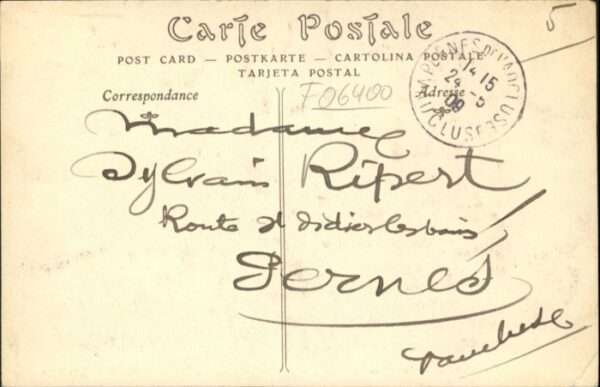 Carte Postale
5
POST CARD — POSTKARTE — CARTOLINA POSTALE
TARJETA POSTAL
Correspondance
F06400
Adresse
14 15
24 -5
09
VAUCLUSE
Madame
Sylvain Ripert
Route St didier les bains
Pernes
Vaucluse